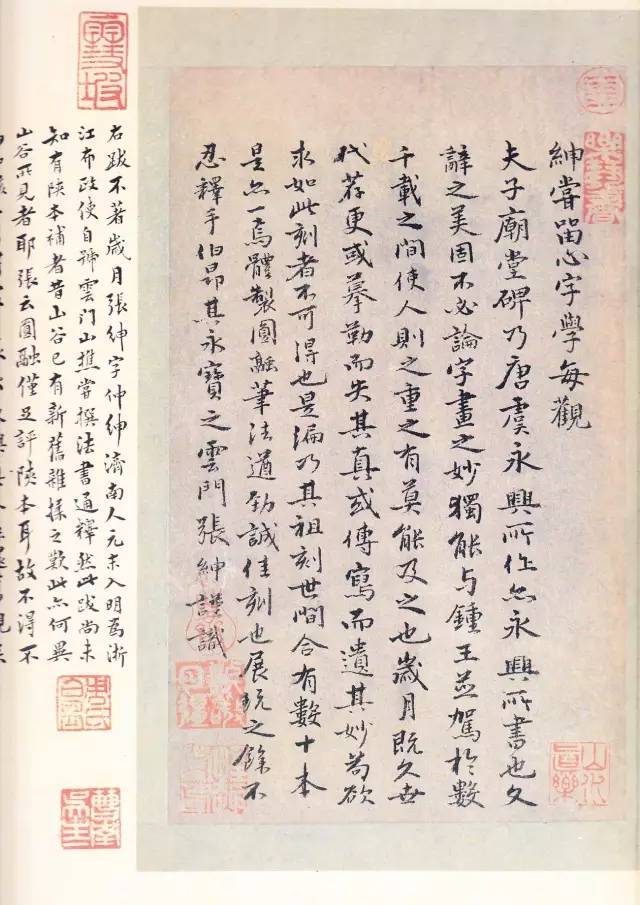 紳嘗留心字學每觀
夫子廟堂碑乃唐虞永興所作亦永興所書也文
辭之美固不必論字畫之妙獨能与鍾王並駕於數
千載之間使人則之重之有莫能及之也歲月既久世
代荐更或摹勒而失其真或傳寫而遺其妙苟欲
求如此刻者不可得也是編乃其祖刻世間合有數十本
是亦一焉體製圓融筆法遒勁誠佳刻也展玩之餘不
忍釋手伯昂其永寶之雲門張紳謹識
右跋不著歲月張紳字仲紳濟南人元末入明為浙
江布政使自號雲門山樵嘗撰法書通釋然此跋尚未
知有陝本補者昔山谷已有新舊雜揉之歎此亦何異
山谷所見者耶張云圓融僅足評陝本耳故不得不